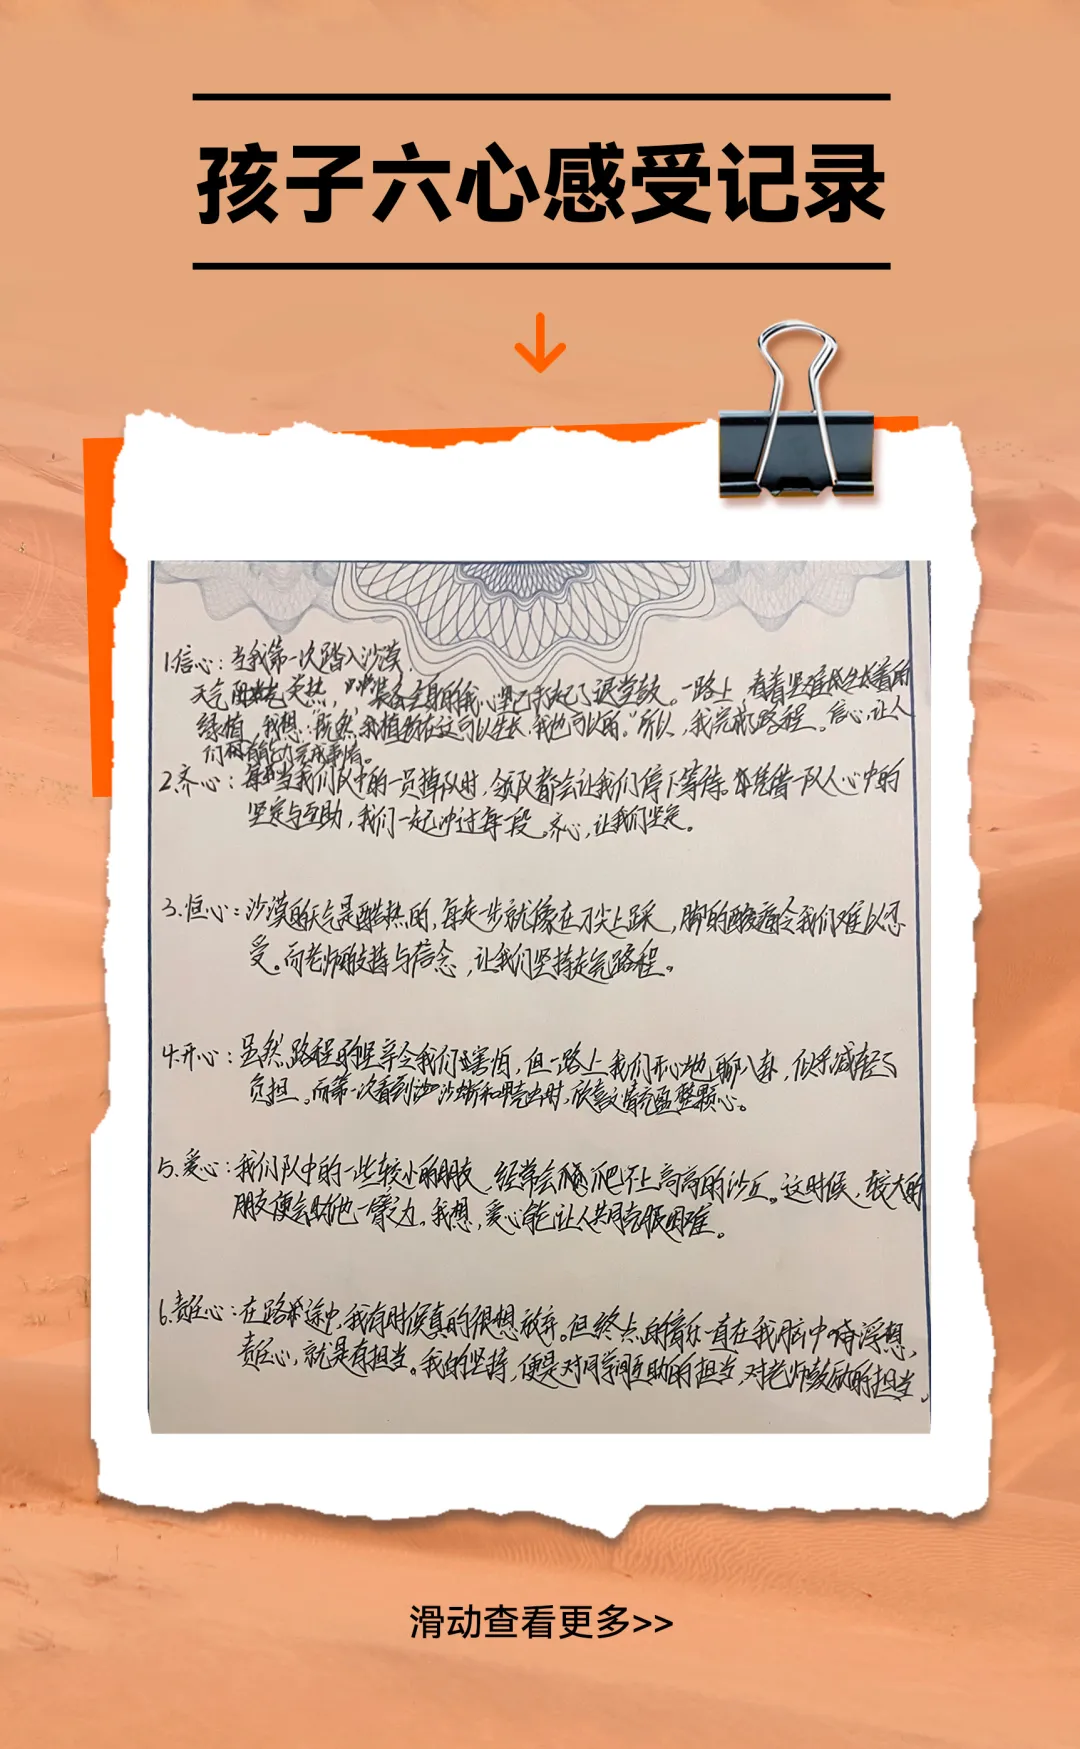 孩子六心感受记录
1.信心：当我第一次踏入沙漠，
天气炎热，全身的我心里已打起了退堂鼓。一路上，看着坚难生长着的
绿植，我想："既然植物在这可以生长，我也可以的。"所以，我完成了路程。信心，让人
们有能力完成事情。
2.齐心：每当我们队中的一员掉队时，领队都会让我们停下等待。凭借一队人心中的
坚定与互助，我们一起冲过每一段。齐心，让我们坚定。
3.恒心：沙漠的天气是酷热的，每走一步就像在刀尖上踩，脚的酸痛令我们难以忍
受。而老师的支持与信念，让我们坚持走完路程。
4.开心：虽然路程的坚辛令我们害怕，但一路上我们开心地聊八卦，似乎减轻了
负担。而第一次看到沙蜥和甲壳虫时，欣喜之情充盈整颗心。
5.爱心：我们队中的一些较小的朋友，经常会爬不上高高的沙丘。这时候，较大的
朋友便会助他一臂之力。我想，爱心能让人共同克服困难。
6.责任心：在路途中，我有时候真的很想放弃。但终点的音乐一直在我脑中浮想，
责任心，就是有担当。我的坚持，便是对同学间互助的担当，对老师鼓励的担当。
滑动查看更多>>